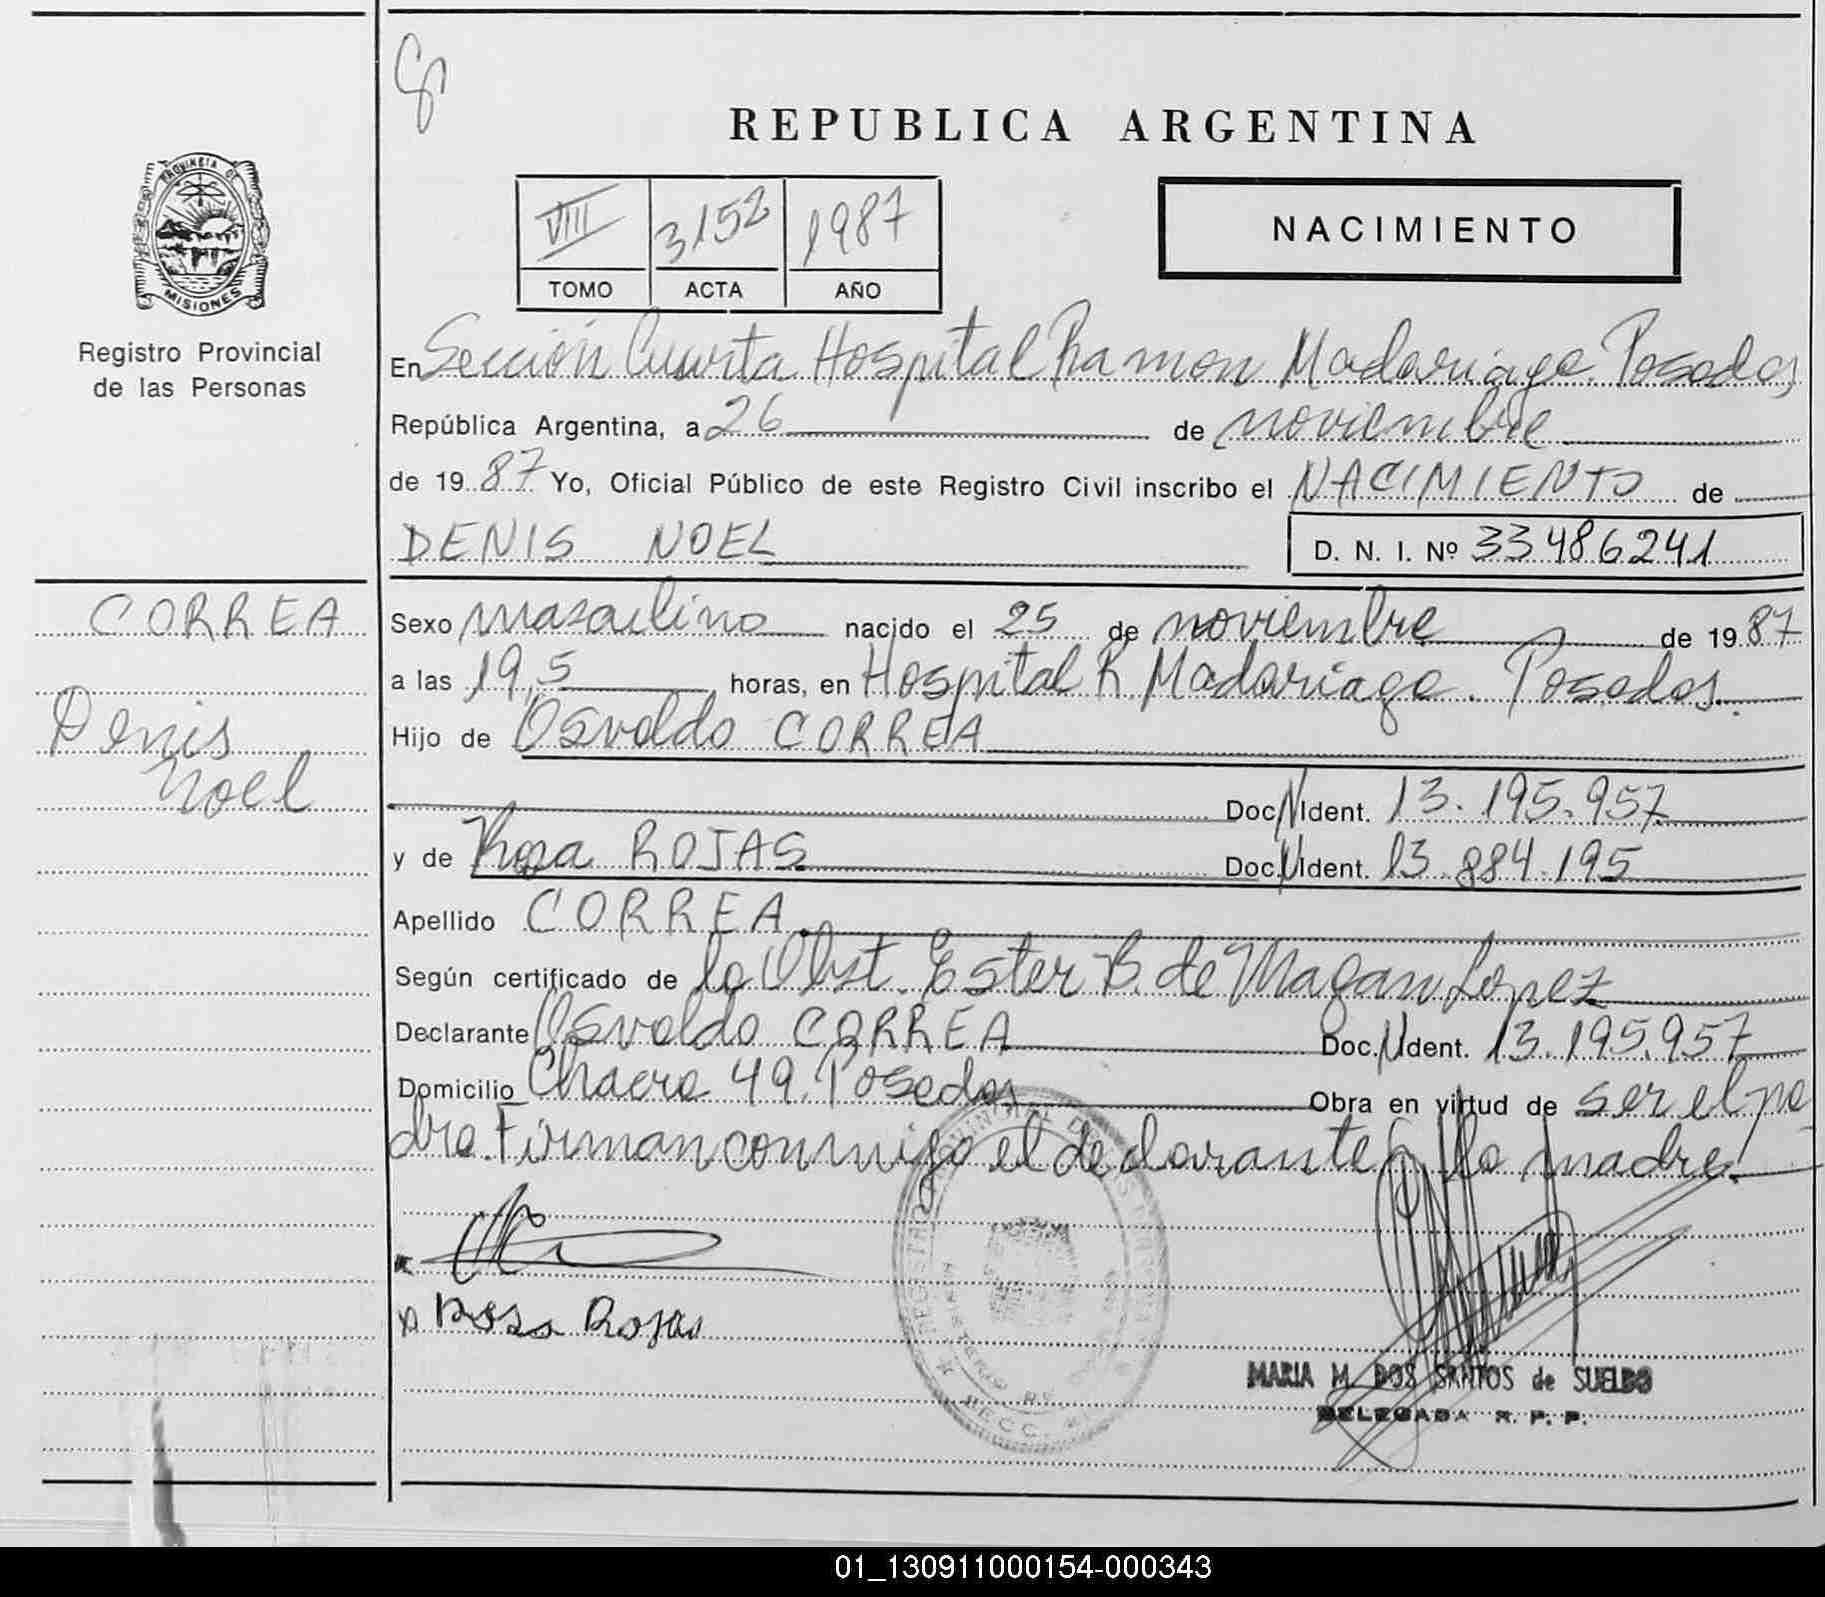 REPUBLICA ARGENTINA
PROVINCIA DE
MISIONES
Registro Provincial
de las Personas
VIII 3152 1987
TOMO ACTA AÑO
NACIMIENTO
En Sección Cuarta Hospital Ramon Madariaga. Posadas
República Argentina, a 26 de noviembre
de 1987 Yo, Oficial Público de este Registro Civil inscribo el NACIMIENTO de
DENIS NOEL D. N. I. Nº 33486241
CORREA
Denis
Noel
Sexo masculino nacido el 25 de noviembre de 1987
a las 19,5 horas, en Hospital R. Madariaga. Posadas.
Hijo de Osvaldo CORREA
Doc. N Ident. 13.195.957
y de Rosa ROJAS Doc. N Ident. 13.884.195
Apellido CORREA.
Según certificado de la Obst. Ester B. de Magan Lopez
Declarante Osvaldo CORREA Doc. N Ident. 13.195.957
Domicilio Chacra 49. Posadas Obra en virtud de ser el pa-
dre. Firman conmigo el declarante y la madre.
x Rosa Rojas
MARIA M. DOS SANTOS de SUELDO
DELEGADA R. P. P.
01_130911000154-000343